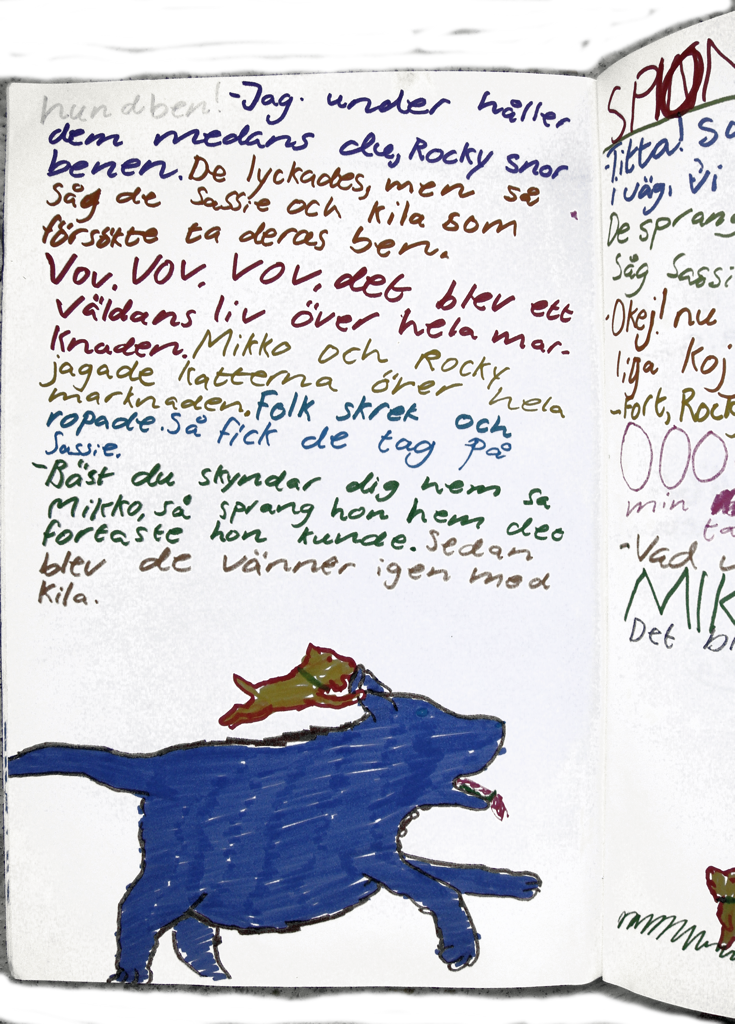 hundben! -Jag under håller
dem medans du, Rocky snor
benen. De lyckades, men så
såg de Sassie och Kila som
försökte ta deras ben.
Vov. Vov. Vov. det blev ett
väldans liv över hela mar-
knaden. Mikko och Rocky
jagade katterna över hela
marknaden. Folk skrek och
ropade. Så fick de tag på
Sassie.
-Bäst du skyndar dig hem sa
Mikko, så sprang hon hem det
fortaste hon kunde. Sedan
blev de vänner igen med
Kila.
SPION
Titta! Sa
iväg. Vi
De sprang
såg Sassi
-Okej! nu
liga koj
-Fort, Rock
OOO
min
ta
-Vad u
MIK
Det bl